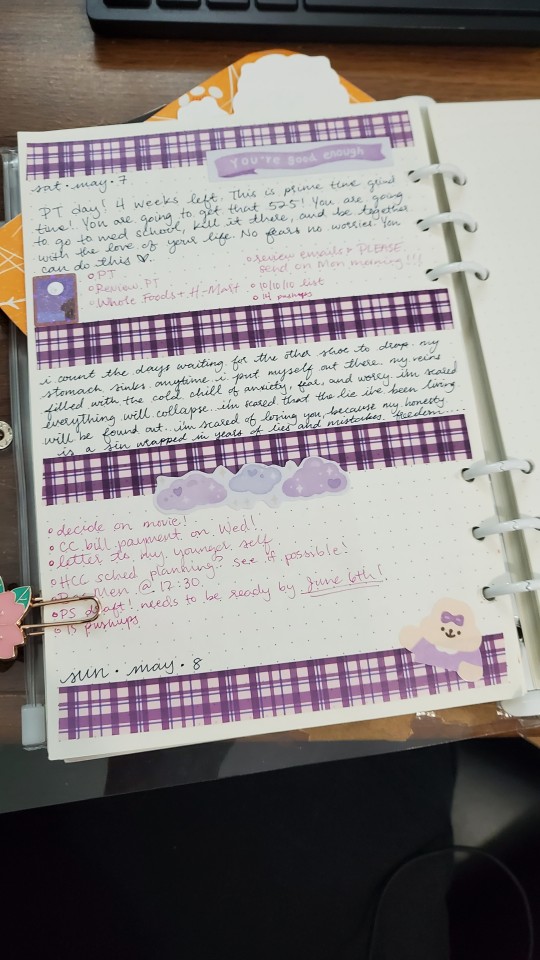 You're good enough
sat · may · 7
PT day! 4 weeks left. This is prime time grind
time! You are going to get that 525! You are going
to go to med school, kill it there, and be together
with the love of your life. No fears no worries. You
can do this ♡.
◦ PT
◦ Review PT
◦ Whole Foods + H-Mart
◦ review emails + PLEASE
send on Mon morning!!!
◦ 10/10/10 list
◦ 14 pushups
i count the days waiting for the other shoe to drop. my
stomach sinks anytime i put myself out there. my veins
filled with the cold chill of anxiety, fear, and worry. im scared
everything will collapse. im scared that the lie ive been living
will be found out. im scared of losing you, because my honesty
is a sin wrapped in years of lies and mistakes. freedom.....
◦ decide on movie!
◦ CC bill payment on Wed!
◦ letter to my younger self
◦ HCC sched planning? see if possible!
Men @ 12:30
◦ PS draft! needs to be ready by June 6th!
◦ 15 pushups
sun · may · 8